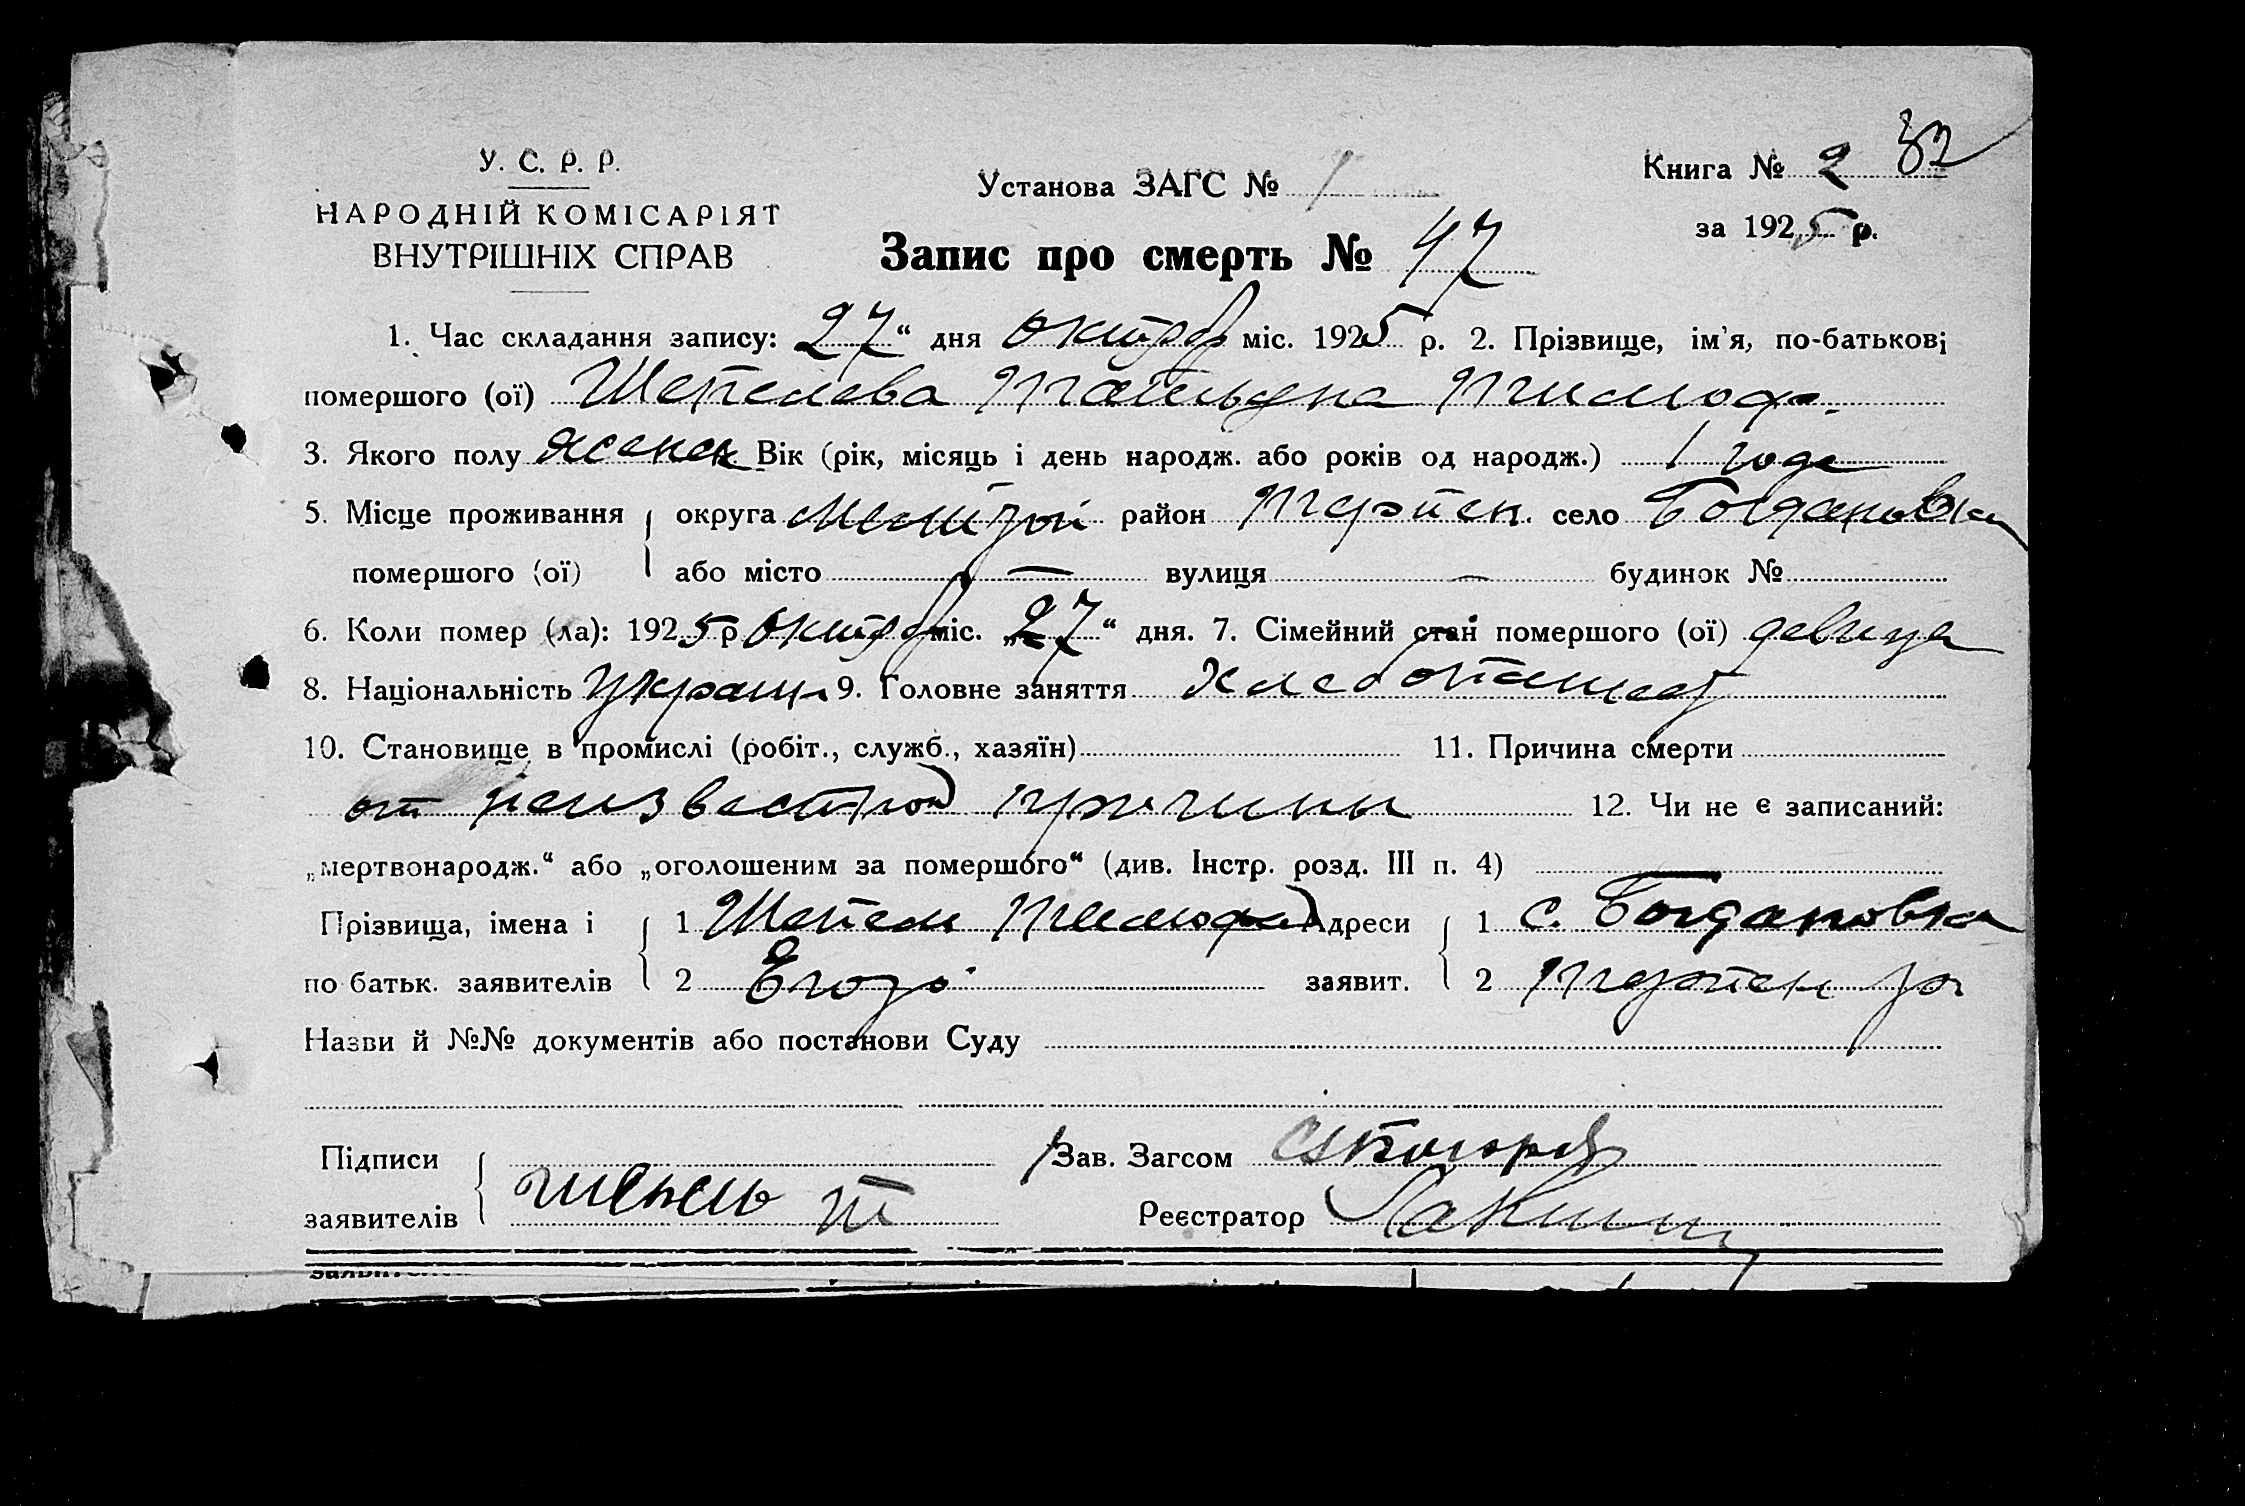 32
У. С. Р. Р.
НАРОДНІЙ КОМІСАРІЯТ
ВНУТРІШНІХ СПРАВ
Установа ЗАГС № 1
Книга № 2
за 1925 р.
Запис про смерть № 47
1. Час складання запису: 27“ дня октяб міс. 1925 р. 2. Прізвище, ім'я, по-батькові
помершого (ої) Шепелева Татьяна Тимоф.
3. Якого полу женск Вік (рік, місяць і день народж. або років од народж.) 1 года
5. Місце проживання округа Мелітой район Терпен. село Богдановка
помершого (ої) або місто — вулиця — будинок №
6. Коли помер (ла): 1925 р октяб міс. „27“ дня. 7. Сімейний стан помершого (ої) девица
8. Національність Украин 9. Головне заняття хлебопашеф
10. Становище в промислі (робіт., служб., хазяїн) 11. Причина смерти
от неизвестной причины 12. Чи не є записаний:
„мертвонародж.“ або „оголошеним за помершого“ (див. Інстр. розд. III п. 4)
Прізвища, імена і 1 Шепель Тимофей Адреси 1 с. Богдановка
по батьк. заявителів 2 Егор. заявит. 2 Терпен р
Назви й №№ документів або постанови Суду
Підписи Зав. Загсом
заявителів Шепель Т Реєстратор